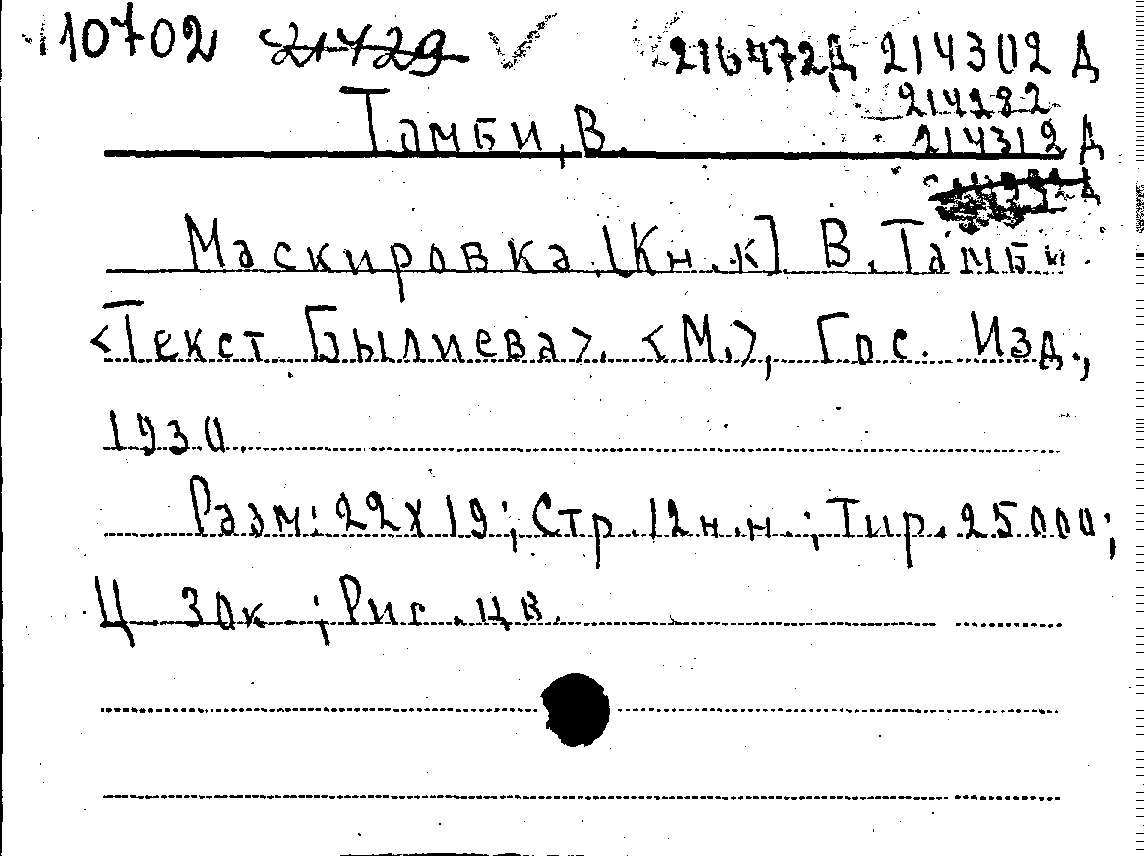 10702 21429 216472Д 214302 Д
214282
Тамби, В. 214312 Д
Маскировка. [Кн.к] В. Тамби.
<Текст Былиева>. <М.>, Гос. Изд.,
1930
Разм: 22х19; Стр. 12 н.н.; Тир. 25000;
Ц 30к ; Рис. цв.